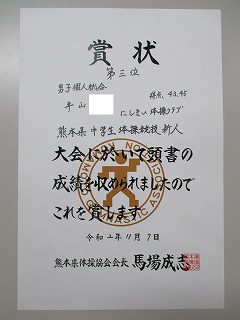 賞状
第三位
男子個人総合 得点、43.45
平山 にしきぃ体操クラブ
熊本県中学生体操競技新人
大会に於いて頭書の
成績を収められましたので
これを賞します
令和2年11月7日
熊本県体操協会会長 馬場成志